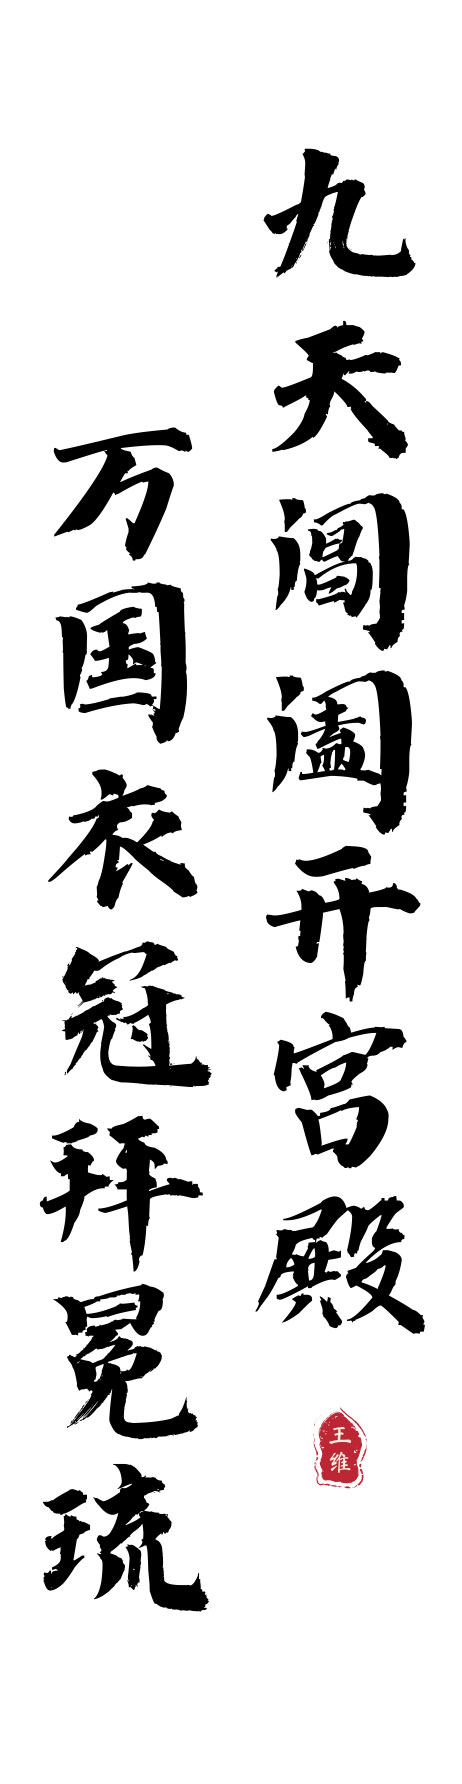 九天阊阖开宫殿
万国衣冠拜冕琉
王维